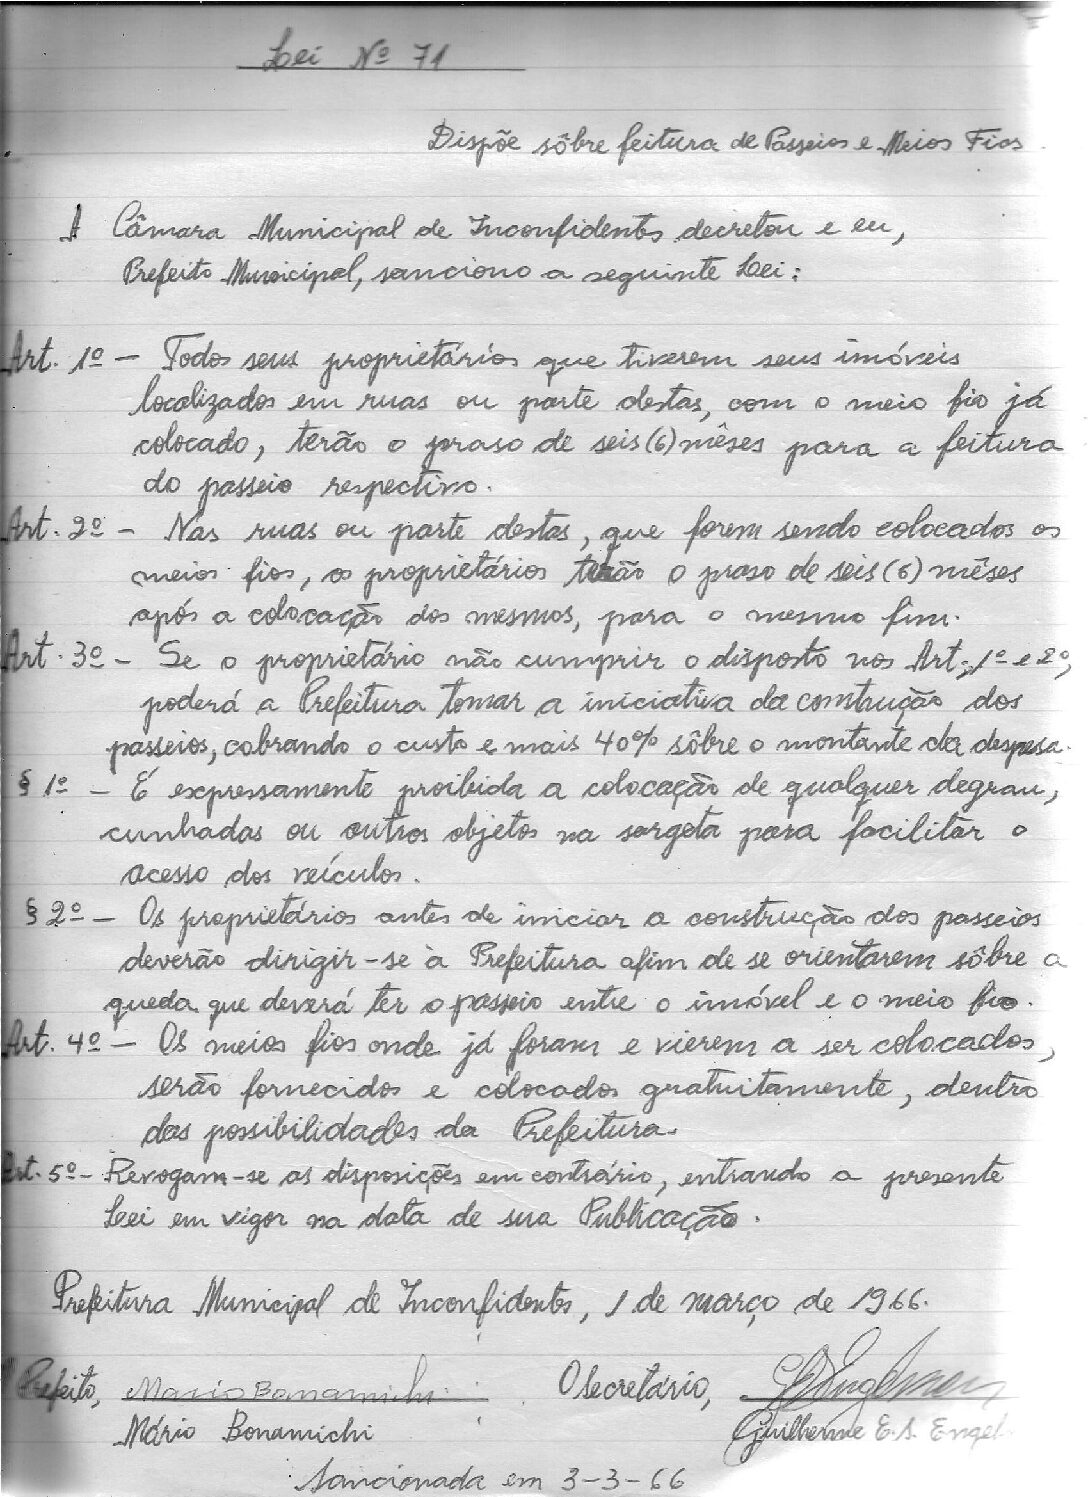 Lei Nº 71
Dispõe sôbre feitura de Passeios e Meios Fios
A Câmara Municipal de Inconfidentes decretou e eu,
Prefeito Municipal, sanciono a seguinte Lei:
Art. 1º - Todos seus proprietários que tiverem seus imóveis
localizados em ruas ou parte destas, com o meio fio já
colocado, terão o praso de seis (6) mêses para a feitura
do passeio respectivo.
Art. 2º - Nas ruas ou parte destas, que forem sendo colocados os
meios fios, os proprietários terão o praso de seis (6) mêses
após a colocação dos mesmos, para o mesmo fim.
Art. 3º - Se o proprietário não cumprir o disposto nos Art; 1º e 2º,
poderá a Prefeitura tomar a iniciativa da construção dos
passeios, cobrando o custo e mais 40% sôbre o montante da despesa.
§ 1º - É expressamente proibida a colocação de qualquer degrau,
cunhadas ou outros objetos na sargeta para facilitar o
acesso dos veículos.
§ 2º - Os proprietários antes de iniciar a construção dos passeios
deverão dirigir-se à Prefeitura afim de se orientarem sôbre a
queda que deverá ter o passeio entre o imóvel e o meio fio.
Art. 4º - Os meios fios onde já foram e vierem a ser colocados,
serão fornecidos e colocados gratuitamente, dentro
das possibilidades da Prefeitura.
Art. 5º - Revogam-se as disposições em contrário, entrando a presente
Lei em vigor na data de sua Publicação.
Prefeitura Municipal de Inconfidentes, 1 de março de 1966.
Prefeito, Mario Bonamichi O secretário,
Mário Bonamichi Guilherme E. S. Engel
Sancionada em 3-3-66